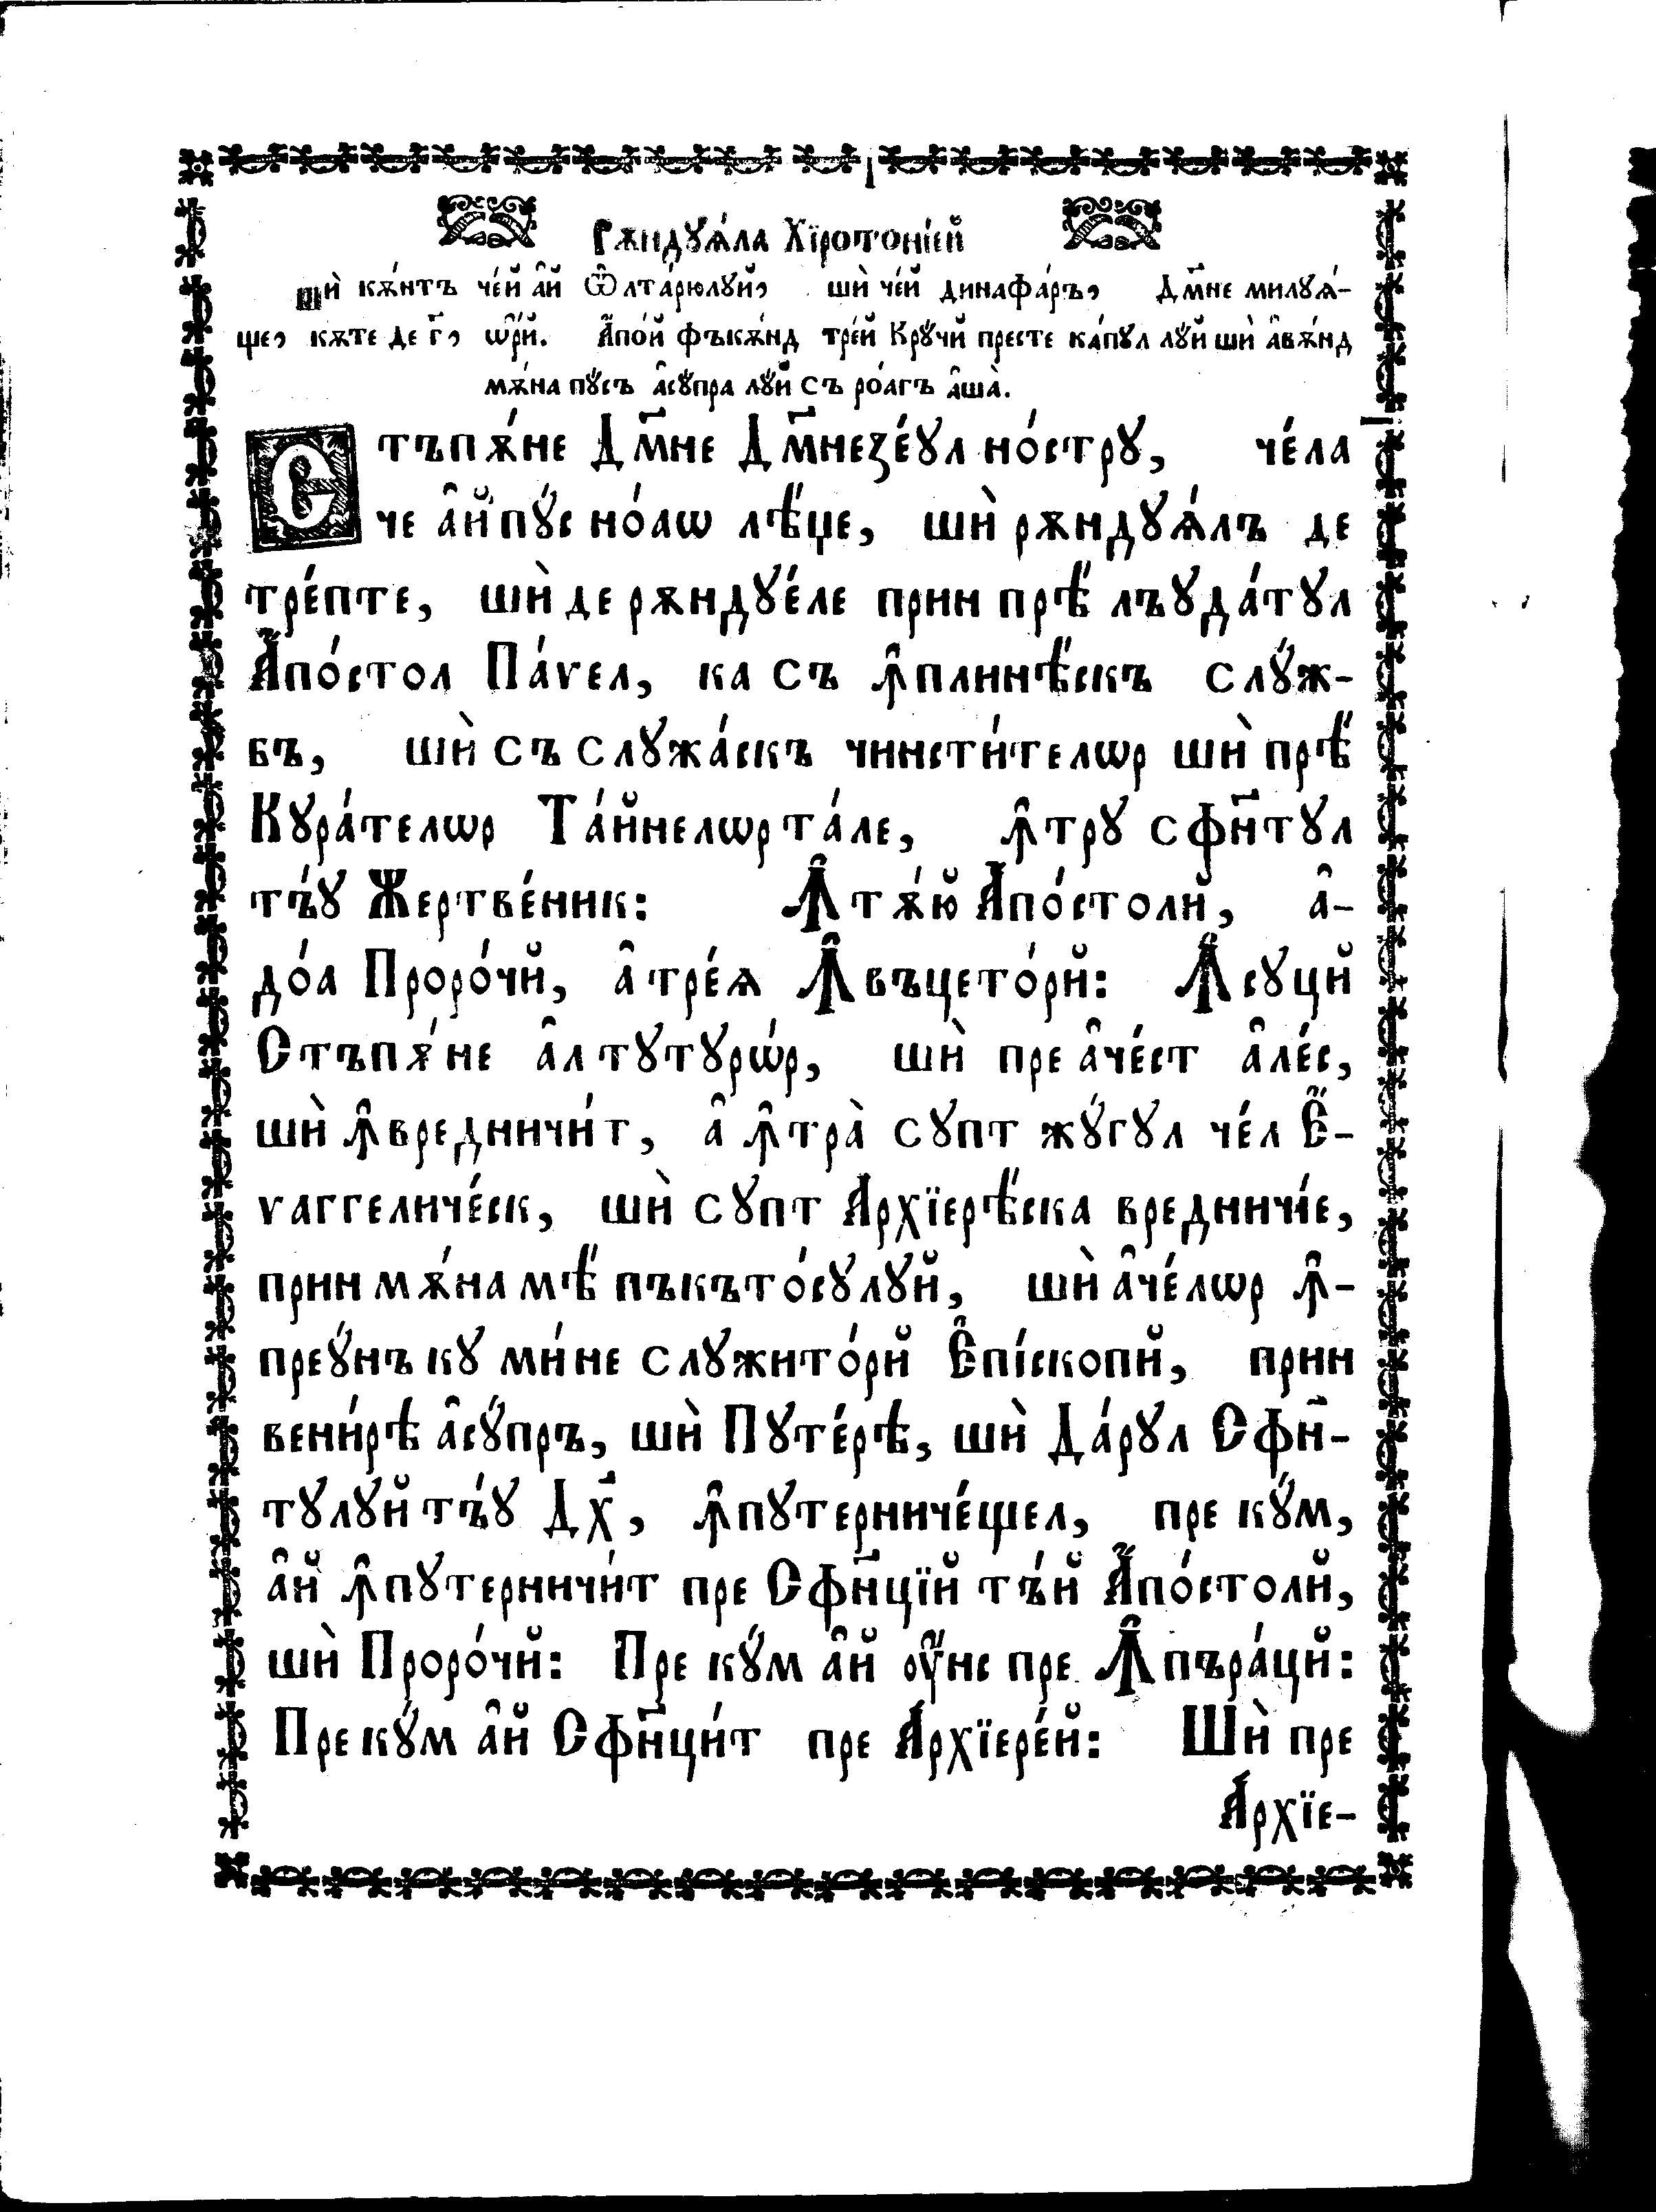 Рѫндꙋѧ́ла Хїротоні́ей
шѝ кѫ́нтъ че́й а҆й Ѿлтарюлꙋй, шѝ че́й динафа́ръ, Дм҃не милꙋѧ́-
ще, кѫте де г҃, ѡ҆рй. А҆по́й фъкѫ́нд тре́й Крꙋ́чй престе ка́пꙋл лꙋй шѝ а҆вѫ́нд
мѫ́на пꙋ́съ а҆сꙋ́пра лꙋй съ ро́агъ а҆ша̀.
Стъпѫ́не Дм҃не Дм҃незе́ꙋл но́стрꙋ, че́ла
че а҆й пꙋ́с но́аѡ лѣ́џе, шѝ рѫндꙋѧ́лъ де
тре́пте, шѝ де рѫндꙋе́ле прин прѣ́ лъꙋда́тꙋл
А҆по́стол Па́ѵел, ка съ ꙟ҆плинѣ́скъ слꙋ́ж-
бъ, шѝ съ слꙋжа́скъ чинсти́телѡр шѝ прѣ́
Кꙋра́телѡр Та́йнелѡр та́ле, ꙟ҆трꙋ сфн҃тꙋл
тъ́ꙋ Жертве́ник: Ꙟ҆тѫ́ю А҆по́столй, а҆-
до́а Проро́чй, а҆ тре́ѧ Ꙟ҆въцето́рй: Ꙟ҆сꙋцй
Стъпѫ́не а҆л тꙋтꙋрѡ́р, шѝ пре а҆че́ст а҆ле́с,
шѝ ꙟ҆вредничи́т, а҆ ꙟ҆тра̀ сꙋпт жꙋ́гꙋл че́л Е҆-
ѵаггеличе́ск, шѝ сꙋпт А҆рхїерѣ́ска вредничі́е,
прин мѫ́на мѣ́ пъкъто́сꙋлꙋй, шѝ а҆че́лѡр ꙟ҆-
преꙋ́нъ кꙋ ми́не слꙋжито́рй Е҆пі́скопй, прин
вени́рѣ а҆сꙋ́пръ, шѝ Пꙋте́рѣ, шѝ Да́рꙋл Сфн҃-
тꙋлꙋй тъ́ꙋ Дх҃, ꙟ҆пꙋтерниче́щел, пре кꙋ́м,
а҆й ꙟ҆пꙋтерничи́т пре Сфн҃цїй тъ́й А҆по́столй,
шѝ Проро́чй: Пре кꙋ́м а҆й ᲂу҆нс пре Ꙟ҆пъра́цй:
Пре кꙋ́м а҆й Сфн҃ци́т пре А҆рхїере́й: Шѝ пре
А҆рхїе-